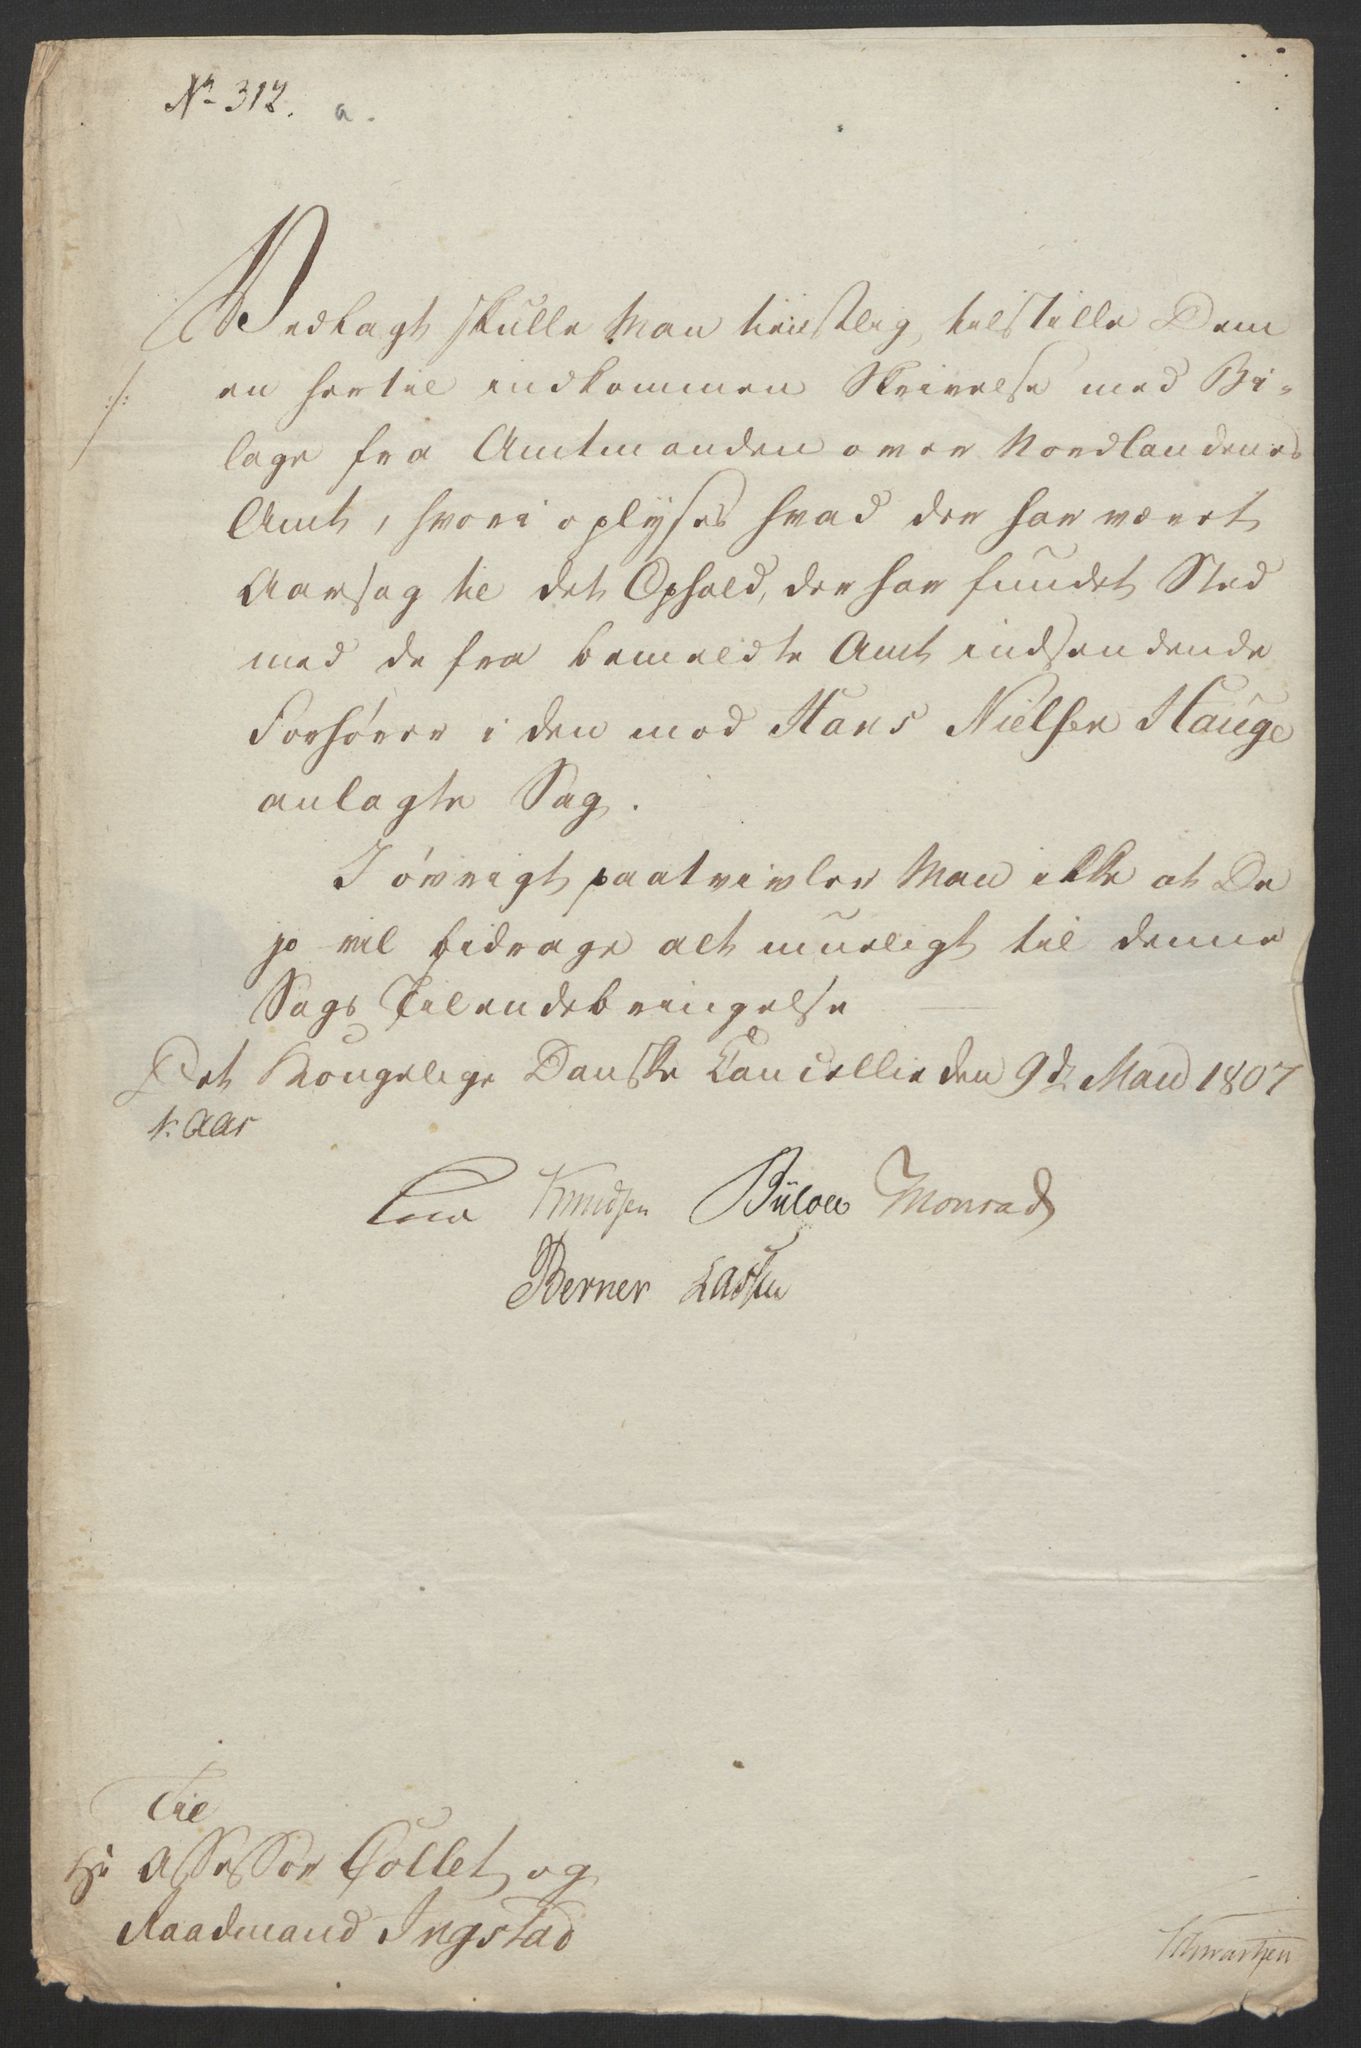 No 312. a.
Vedlagt skulle Man tienstlig tilstille Dem
./.
en hertil indkommen Skrivelse med Bi-
lage fra Amtmanden over Nordlandenes
Amt, hvori oplyses hvad der har været
Aarsag til det Ophold, der har fundet Sted
med de fra bemeldte Amt indsendende
Forhører i den mod Hans Nielsen Hauge
anlagte Sag.
I øvrigt paatvivler Man ikke at De
jo vil bidrage alt mueligt til denne
Sags Tilendebringelse
Det Kongelige Danske Cancellie den 9d Maii 1807
Kaas
Knudsen Bülow Monrad
Berner Lassen
Til
Hr Assessor Collet og
Raadmand Ingstad